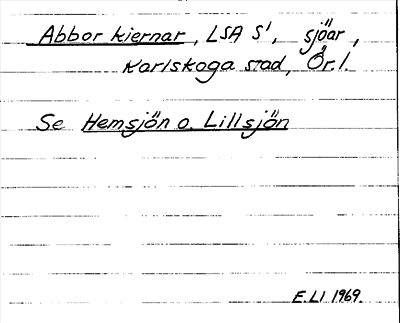 Abbor kiernar, LSA S1, sjöar,
Karlskoga stad, Ör. l.
Se Hemsjön o. Lillsjön
E. LI 1969.